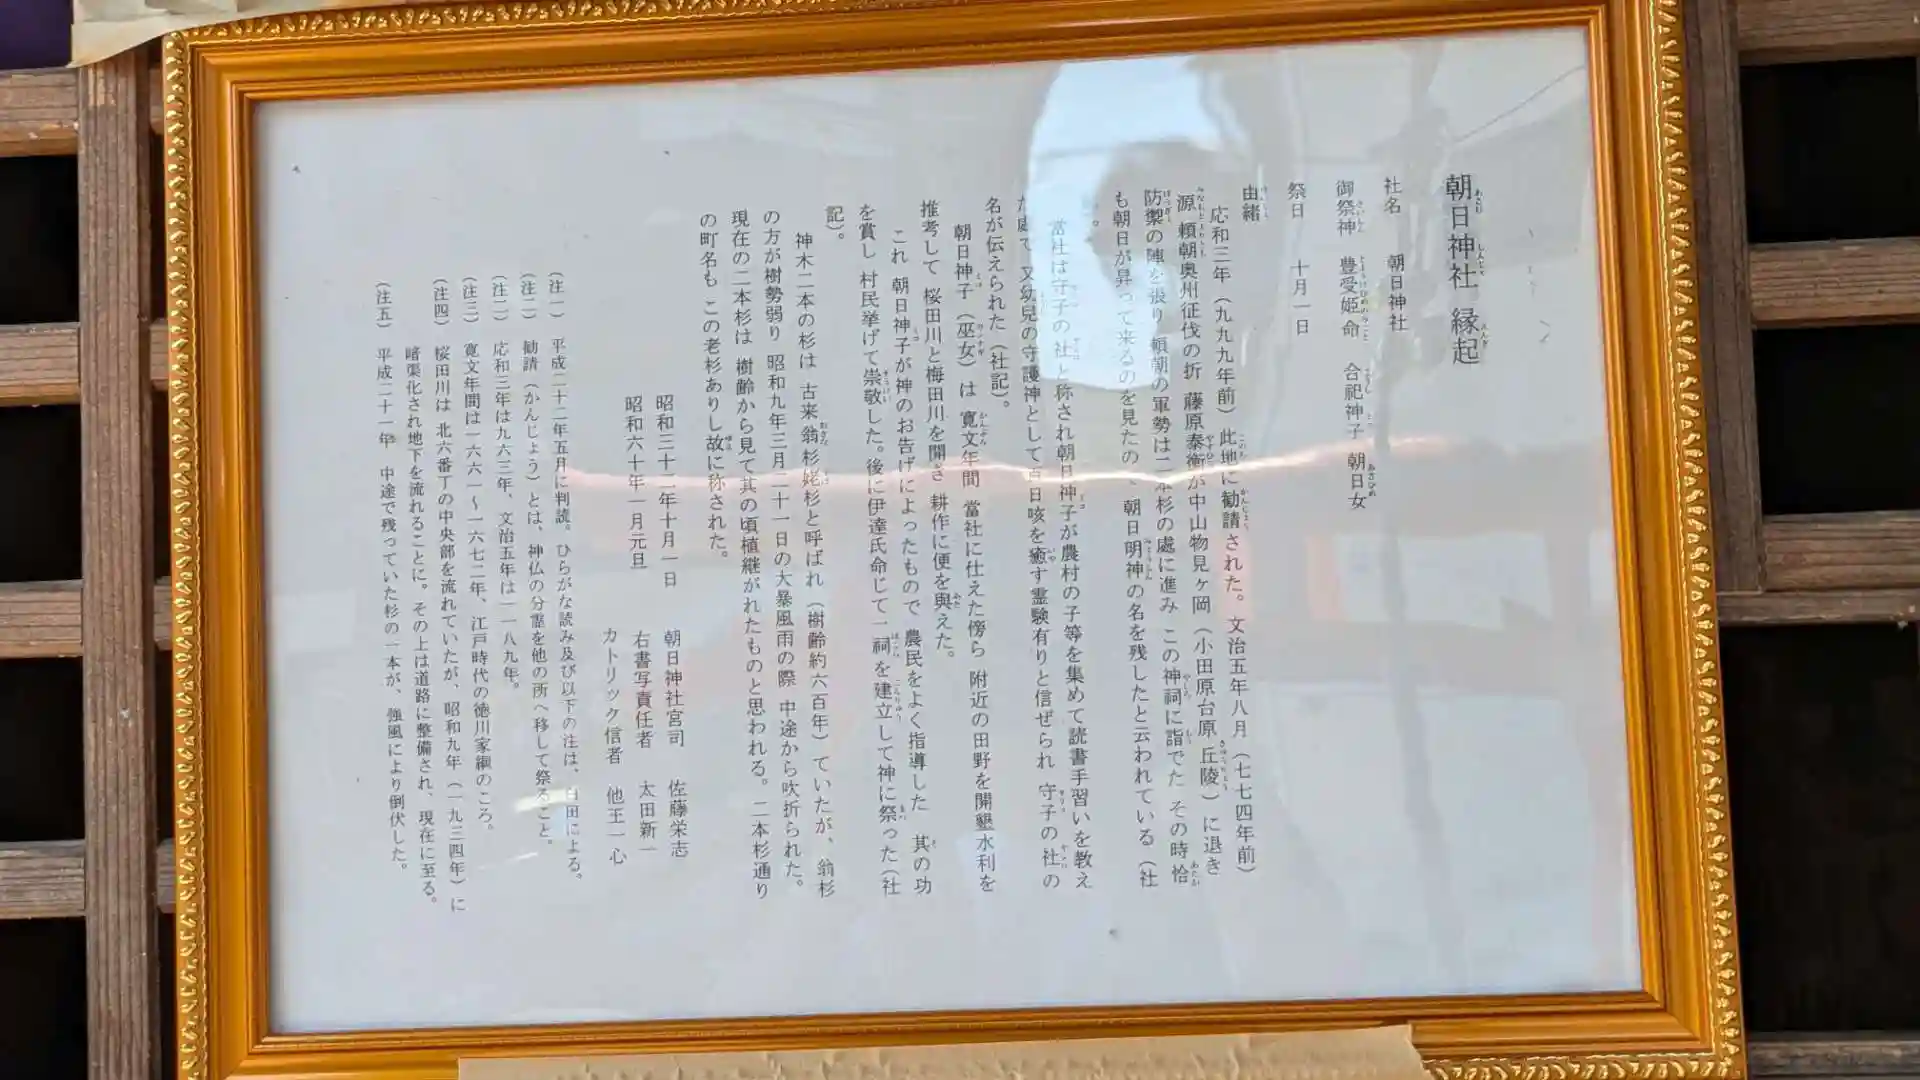 朝日神社 縁起
社名 朝日神社
御祭神 豊受姫命 合祀神子 朝日女
祭日 十月一日
由緒
応和三年（九九九年前）此地に勧請された。文治五年八月（七七四年前）
源 頼朝奥州征伐の折 藤原泰衡が中山物見ヶ岡（小田原台原 丘陵）に退き
防禦の陣を張り 頼朝の軍勢は二本杉の處に進み この神祠に詣でた その時 恰
も朝日が昇って来るのを見たの 、朝日明神の名を残したと云われている（社
。
當社は守子の社と称され朝日神子が農村の子等を集めて読書手習いを教え
た處で 又幼児の守護神として百日咳を癒す霊験有りと信ぜられ 守子の社の
名が伝えられた（社記）。
朝日神子（巫女）は 寛文年間 當社に仕えた傍ら 附近の田野を開墾水利を
推考して 桜田川と梅田川を開ぎ 耕作に便を與えた。
これ 朝日神子が神のお告げによったもので 農民をよく指導した 其の功
を賞し 村民挙げて崇敬した。後に伊達氏命じて一祠を建立して神に祭った（社
記）。
神木二本の杉は 古来翁杉姥杉と呼ばれ（樹齢約六百年）ていたが、翁杉
の方が樹勢弱り 昭和九年三月二十一日の大暴風雨の際 中途から吹折られた。
現在の二本杉は 樹齢から見て其の頃植継がれたものと思われる。二本杉通り
の町名も この老杉ありし故に称された。
昭和三十二年十月一日 朝日神社宮司 佐藤栄志
昭和六十年一月元旦 右書写責任者 太田新一
カトリック信者 他王一心
（注一） 平成二十二年五月に判読。ひらがな読み及び以下の注は、白田による。
（注二） 勧請（かんじょう）とは、神仏の分霊を他の所へ移して祭ること。
（注二） 応和三年は九六三年、文治五年は一一八九年。
（注三） 寛文年間は一六六一～一六七二年、江戸時代の徳川家綱のころ。
（注四） 桜田川は 北六番丁の中央部を流れていたが、昭和九年（一九三四年）に
暗渠化され地下を流れることに。その上は道路に整備され、現在に至る。
（注五） 平成二十一年 中途で残っていた杉の一本が、強風により倒伏した。